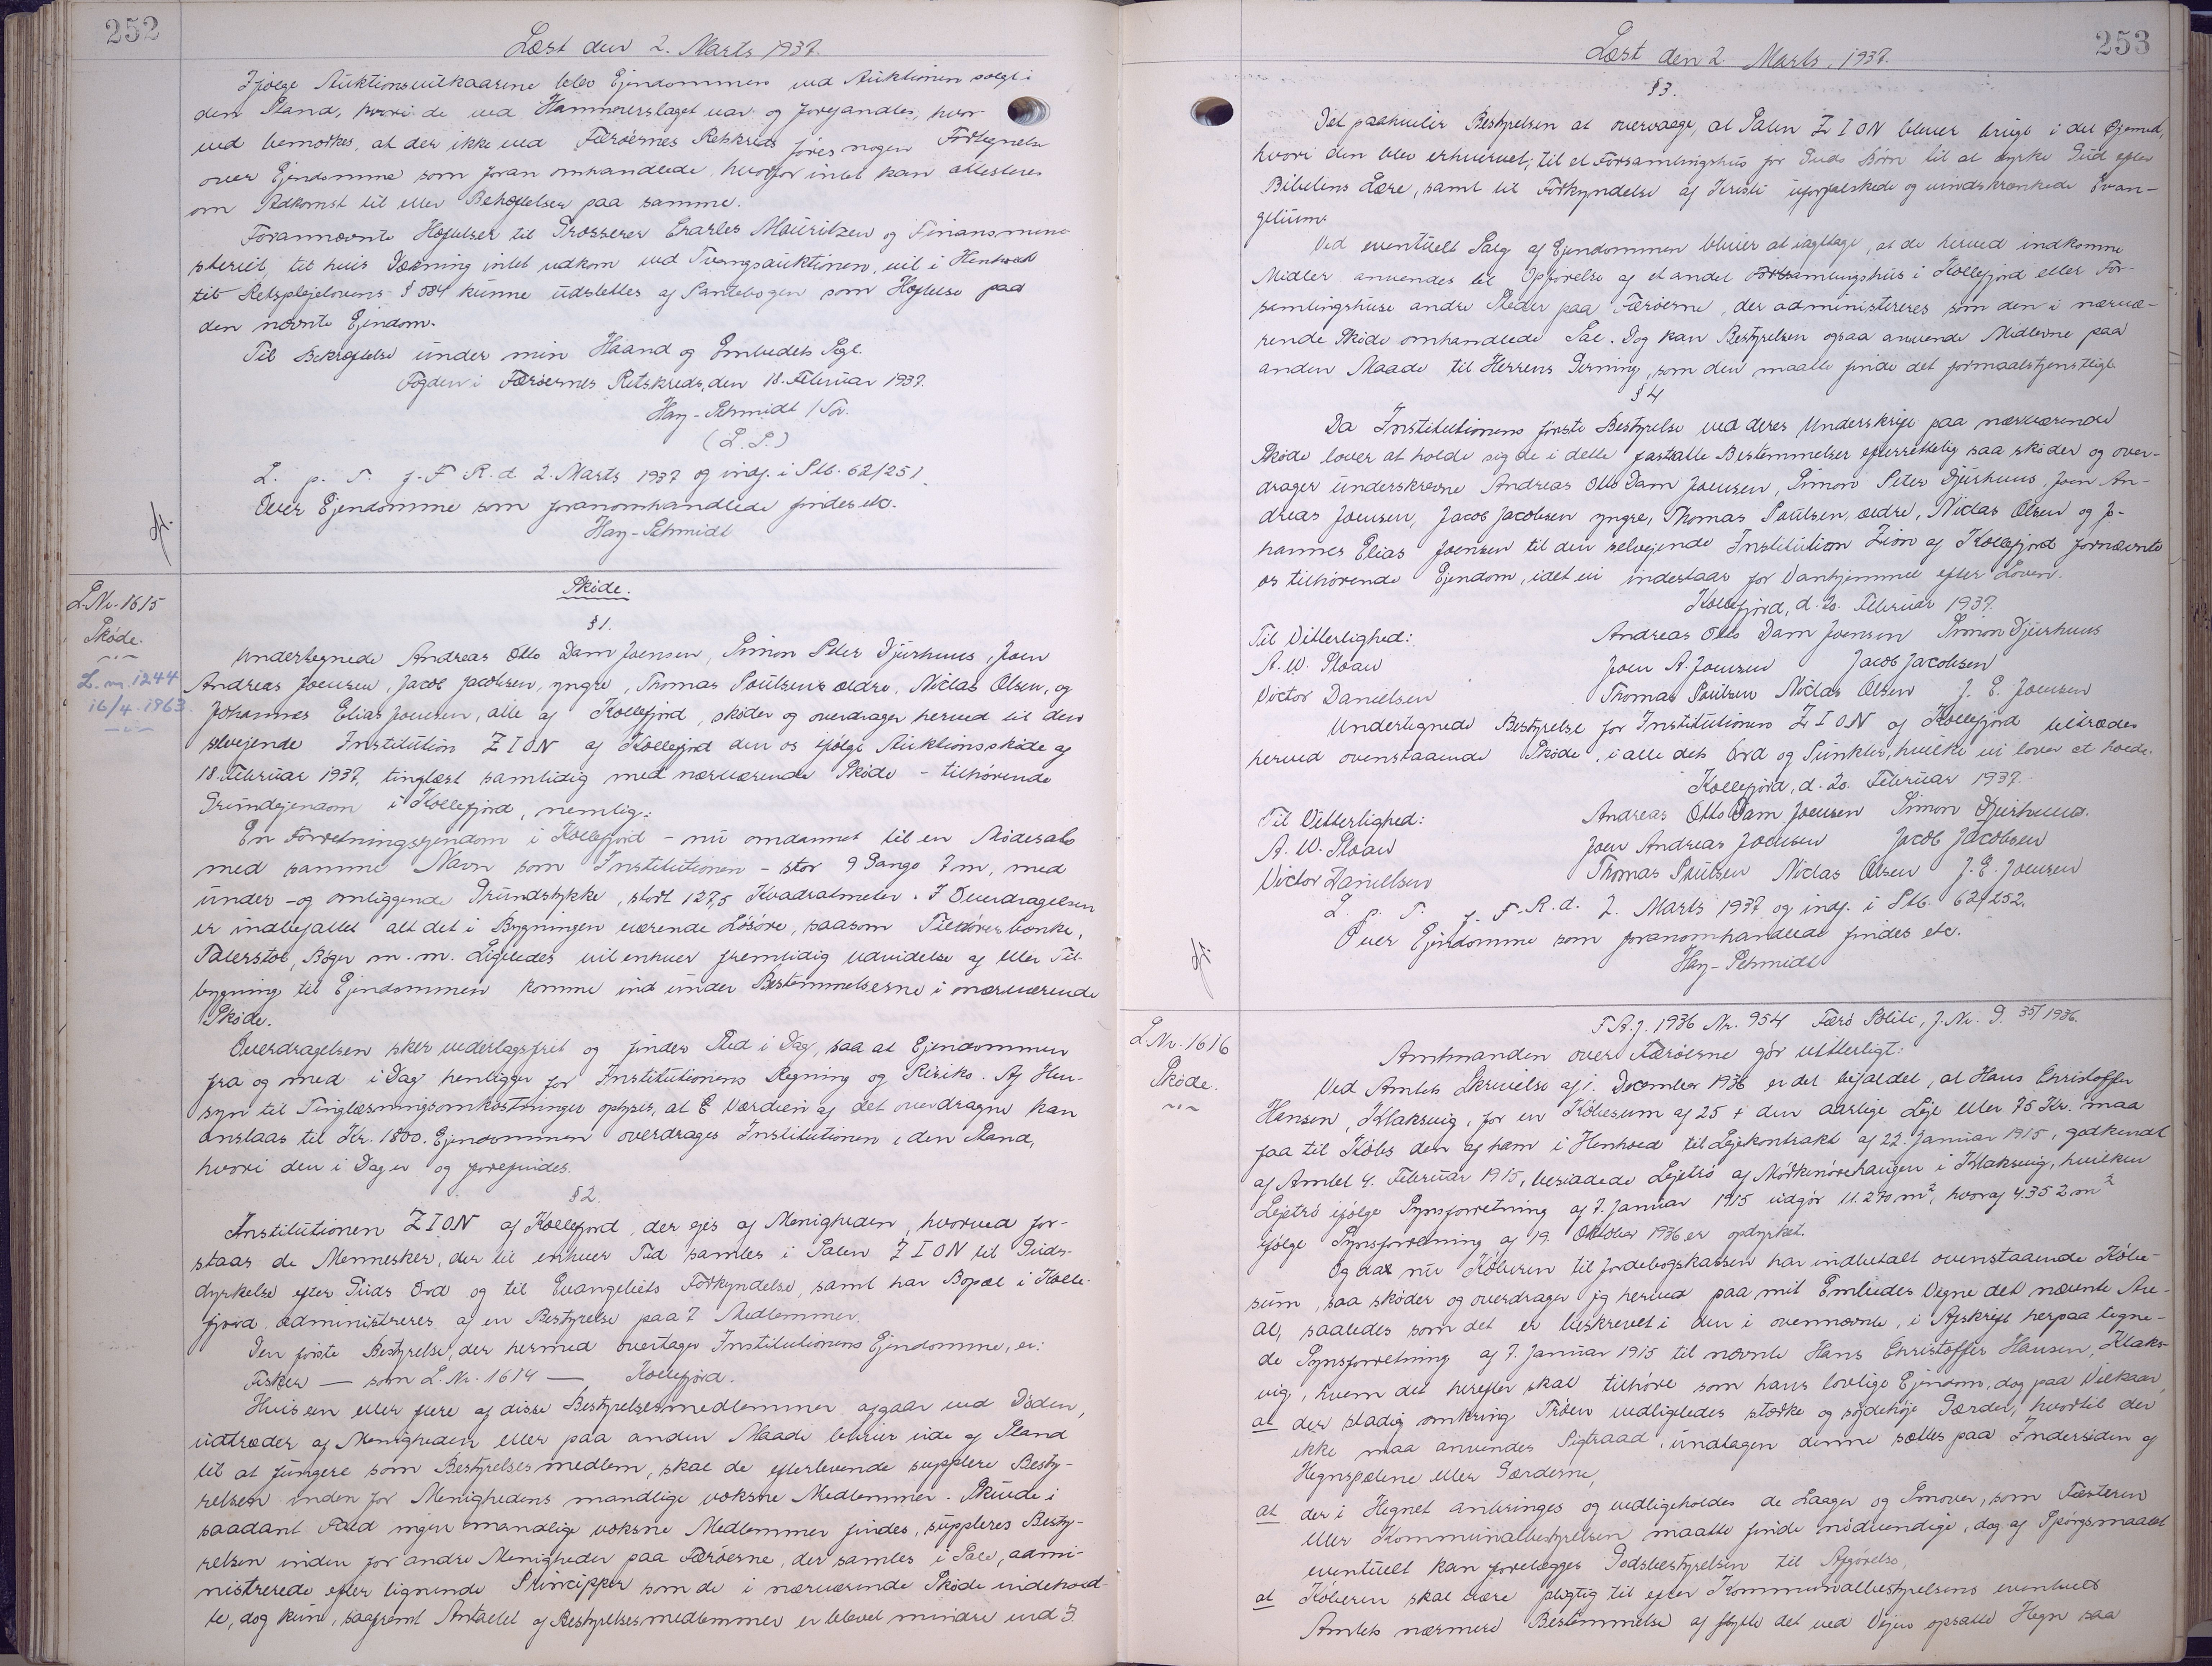 252
Læst den 2. Marts 1937.
Ifølge Auktionsvilkaarene blev Ejendommen ved Auktionen solgt i
den Stand, hvori de ved Hammerslaget var og forefandtes, hvor-
ved bemærkes, at der ikke ved Færøernes Retskreds føres nogen Fortegnelse
over Ejendomme som foran omhandlede, hvorfor intet kan attesteres
om Adkomst til eller Behæftelser paa samme.
Forannævnte Hæftelser til Grosserer Charles Mauritzen og Finansmini-
steriet, til hvis Dækning intet udkom ved Tvangsauktionen, vil i Henhold
til Retsplejelovens § 584 kunne udslettes af Pantebogen som Hæftelse paa
den nævnte Ejendom.
Til Bekræftelse under min Haand og Embedets Segl.
Fogden i Færøernes Retskreds, den 18. Februar 1937.
Hay-Schmidt /
(L. S.)
L. p. T. f. F. R. d. 2. Marts 1937 og indf. i Ptb. 62/251.
Over Ejendomme som foranomhandlede findes etc.
Hay-Schmidt
L.Nr. 1615
Skøde.
L. nr. 1244
16/4. 1963
Skøde.
§ 1.
Undertegnede Andreas Otto Dam Joensen, Simon Peter Djurhuus, Joen
Andreas Joensen, Jacob Jacobsen, yngre, Thomas Poulsen, ældre, Niclas Olsen, og
Johannes Elias Joensen, alle af Kollefjord, skøder og overdrager herved til den
selvejende Institution ZION af Kollefjord den os ifølge Auktionsskøde af
18. Februar 1937, tinglæst samtidig med nærværende Skøde – tilhørende
Grundejendom i Kollefjord, nemlig:
En Forretningsejendom i Kollefjord – nu omdannet til en Mødesal
med samme Navn som Institutionen – stor 9 Gange 7 m, med
under- og omliggende Grundstykke, stort 127,5 Kvadratmeter. I Overdragelsen
er indbefattet alt det i Bygningen værende Løsøre, saasom Tilhørerbænke,
Talerstol, Bøger m. m. Ligeledes vil enhver fremtidig Udvidelse af eller Til-
bygning til Ejendommen komme ind under Bestemmelserne i nærværende
Skøde.
Overdragelsen sker vederlagsfrit og finder Sted i Dag, saa at Ejendommen
fra og med i Dag henligger for Institutionens Regning og Risiko. Af Hen-
syn til Tinglæsningsomkostninger oplyses, at Værdien af det overdragne kan
anslaas til Kr. 1800. Ejendommen overdrages Institutionen i den Stand,
hvori den i Dag er og forefindes.
§ 2.
Institutionen ZION af Kollefjord, der ejes af Menigheden, hvorved for-
staas de Mennesker, der til enhver Tid samles i Salen ZION til Guds-
dyrkelse efter Guds Ord og til Evangeliets Forkyndelse, samt har Bopæl i Kolle-
fjord, administreres af en Bestyrelse paa 7 Medlemmer.
Den første Bestyrelse, der hermed overtager Institutionens Ejendomme, er:
Fisker — som L. Nr. 1614 — Kollefjord.
Hvis een eller flere af disse Bestyrelsesmedlemmer afgaar ved Døden,
udtræder af Menigheden eller paa anden Maade bliver ude af Stand
til at fungere som Bestyrelsesmedlem, skal de efterlevende supplere Besty-
relsen inden for Menighedens mandlige voksne Medlemmer. Skulde i
saadant Fald ingen mandlige voksne Medlemmer findes, suppleres Besty-
relsen inden for andre Menigheder paa Færøerne, der samles i Sale, admi-
nistrerede efter lignende Principper som de i nærværende Skøde indehold-
te, dog kun, saafremt Antallet af Bestyrelsesmedlemmer er blevet mindre end 3.
253
Læst den 2. Marts, 1937.
§ 3.
Det paahviler Bestyrelsen at overvaage, at Salen ZION bliver brugt i det Øjemed,
hvori den blev erhvervet; til et Forsamlingshus for Guds Børn til at dyrke Gud efter
Bibelens Lære, samt til Forkyndelse af Kristi uforfalskede og uindskrænkede Evan-
gelium.
Ved eventuelt Salg af Ejendommen bliver at iagttage, at de herved indkomne
Midler anvendes til Opførelse af et andet Forsamlingshus i Kollefjord eller For-
samlingshuse andre Steder paa Færøerne, der administreres som den i nærvæ-
rende Skøde omhandlede Sal. Dog kan Bestyrelsen ogsaa anvende Midlerne paa
anden Maade til Herrens Gerning, som den maatte finde det formaalstjenstligt.
§ 4
Da Institutionens første Bestyrelse ved deres Underskrift paa nærværende
Skøde lover at holde sig de i dette fastsatte Bestemmelser efterrettelig saa skøder og over-
drager underskrevne Andreas Otto Dam Joensen, Simon Peter Djurhuus, Joen An-
dreas Joensen, Jacob Jacobsen yngre, Thomas Poulsen, ældre, Niclas Olsen og Jo-
hannes Elias Joensen til den selvejende Institution Zion af Kollefjord fornævnte
os tilhørende Ejendom, idet vi indestaar for Vanhjemmel efter Loven.
Kollefjord, d. 20. Februar 1937.
Til Vitterlighed: Andreas Otto Dam Joensen Simon Djurhuus
A. W. Sloan Joen A. Joensen Jacob Jacobsen
Victor Danielsen Thomas Poulsen Niclas Olsen J. E. Joensen
Undertegnede Bestyrelse for Institutionen ZION af Kollefjord tiltræder
herved ovenstaaende Skøde, i alle dets Ord og Punkter, hvilke vi lover at holde.
Kollefjord, d. 20. Februar 1937.
Til Vitterlighed: Andreas Otto Dam Joensen Simon Djurhuus.
A. W. Sloan Joen Andreas Joensen Jacob Jacobsen
Victor Danielsen Thomas Poulsen Niclas Olsen J. E. Joensen
L. p. T. f. F. R. d. 2. Marts 1937 og indf. i Ptb. 62/252.
Over Ejendomme som foranomhandlede findes etc.
Hay-Schmidt
L.Nr. 1616
Skøde.
F.A.J. 1936 Nr. 954 Færø Politi, J. Nr. G. 35/1936.
Amtmanden over Færøerne gør vitterligt:
Ved Amtets Skrivelse af 1. December 1936 er det bifaldet, at Hans Christoffer
Hansen, Klaksvig, for en Købesum af 25 × den aarlige Leje eller 75 Kr. maa
faa til Købs den af ham i Henhold til Lejekontrakt af 22. Januar 1915, godkendt
af Amtet 4. Februar 1915, besiddede Lejetrø af Mørkenørehaugen i Klaksvig, hvilken
Lejetrø ifølge Synsforretning af 7. Januar 1915 udgør 11.270 m², hvoraf 4352 m²
ifølge Synsforretning af 19. Oktober 1936 er opdyrket.
Og da nu Køberen til Jordebogskassen har indbetalt ovenstaaende Købe-
sum, saa skøder og overdrager jeg herved paa mit Embedes Vegne det nævnte Are-
al, saaledes som det er beskrevet i den i ovennævnte, i Afskrift herpaa tegne-
de Synsforretning af 7. Januar 1915 til nævnte Hans Christoffer Hansen, Klaks-
vig, hvem det herefter skal tilhøre som hans lovlige Ejendom, dog paa Vilkaar,
at der stadig omkring Trøen vedligeholdes stærke og højdehøje Gærder, hvortil der
ikke maa anvendes Pigtraad, undtagen denne sættes paa Indersiden af
Hegnspælene eller Gærderne,
at der i Hegnet anbringes og vedligeholdes de Laager og Smover, som Fæsteren
eller Kommunalbestyrelsen maatte finde nødvendige, dog at Spørgsmaalet
eventuelt kan forelægges Godsbestyrelsen til Afgørelse,
at Køberen skal være pligtig til efter Kommunalbestyrelsens eventuelt
Amtets nærmere Bestemmelse at flytte det ved Vejen opsatte Hegn saa